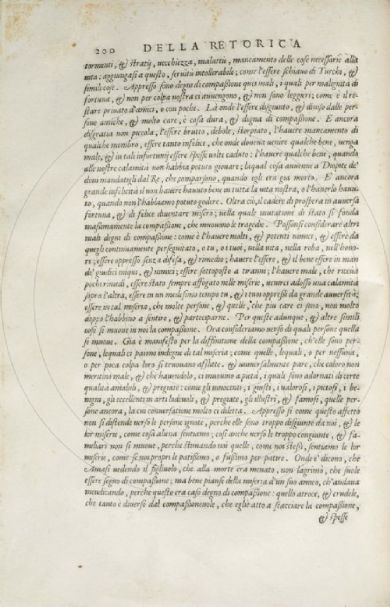 200 DELLA RETORICA
tormenti, & stratij, vecchiezza, malattie, mancamento delle cose necessarie alla
vita: aggiungasi a questo, servitù intollerabile; come l'essere schiavo di Turchi, &
simili cose. Appresso sono degni di compassione quei mali, i quali per malignità di
fortuna, & non per colpa nostra ci avvengono, & non sono leggieri; come è il re-
stare privato d'amici, o con pochi. Là onde l'essere disgiunto, & diviso dalle per-
sone amiche, & molto care, è cosa dura, & degna di compassione. E ancora
disgratia non piccola, l'essere brutto, debole, storpiato, l'havere mancamento di
qualche membro, essere tanto infelice, che onde dovea venire qualche bene, venga
male; & in tali infortunij essere spesse volte caduto: l'havere qualche bene, quando
alle nostre calamità non habbia potuto giovare; la qual cosa avvenne a Diopite de'
doni mandategli dal Re, che comparsono, quando egli era già morto. E' ancora
grande infelicità il non havere havuto bene in tutta la vita nostra, o l'haverlo havu-
to, quando non l'habbiamo potuto godere. Oltra ciò, il cadere di prospera in avversa
fortuna, & di felice diventare misero; nella quale mutatione di stato si fonda
massimamente la compassione, che muovono le tragedie. Possonsi considerare altri
mali degni di compassione: come è l'havere molti, & potenti nimici, & essere da
quegli continuamente perseguitato, o tu, o tuoi, nella vita, nella roba, nell'hono-
re; essere oppresso senza difesa, & rimedio; havere l'essere, & il bene essere in man
de' giudici iniqui, & nimici; essere sottoposto a tiranni; l'havere male, che riceva
pochi rimedi, essere stato sempre affogato nelle miserie, venirci adosso una calamità
sopra l'altra, essere in un medesimo tempo tu, & i tuoi oppressi da grande avversità;
essere in tal miseria, che molte persone, & quelle, che più care ci sono, non molto
doppo l'habbino a sentire, & participarne. Per queste adunque, & altre simili
cose si muove in noi la compassione. Ora consideriamo verso di quali persone quella
si muove. Già è manifesto per la diffinitione della compassione, ch'elle sono per-
sone, le quali ci paiono indegne di tal miseria; come quelle, le quali, o per nessuna,
o per poca colpa loro si trovano afflitte. & universalmente pare, che coloro non
meritino male, & che havendolo, ci muovino a pietà, i quali sono adornati di certe
qualità amabili, & pregiate: come gl'innocenti, i giusti, i valorosi, i pietosi, i be-
nigni, gli eccellenti in arti lodevoli, & pregiate, gli illustri, & famosi, quelle per-
sone ancora, la cui conversatione molto ci diletta. Appresso si come questo affetto
non si distende verso le persone ignote, perché elle sono troppo disgiunte da noi, & le
lor miserie, come cosa aliena sentiamo; così anche verso le troppo congiunte, & fa-
migliari non si muove, perché stimando noi quelle, come noi stessi, sentiamo le lor
miserie, come se in noi propri le patissimo, o fussimo per patire. Onde e' dicono, che
Amasi vedendo il figliuolo, che alla morte era menato, non lagrimò, che suole
essere segno di compassione; ma bene pianse della miseria d'un suo amico, ch'andava
mendicando, perché questo era caso degno di compassione: quello atroce, & crudele,
che tanto è diverso dal compassionevole, che egli è atto a scacciare la compassione,
& spesse